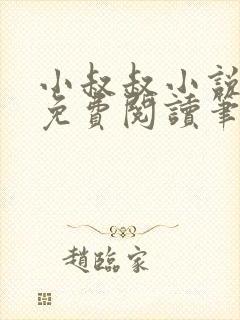 小叔叔小說
免費閱讀筆
趙臨家